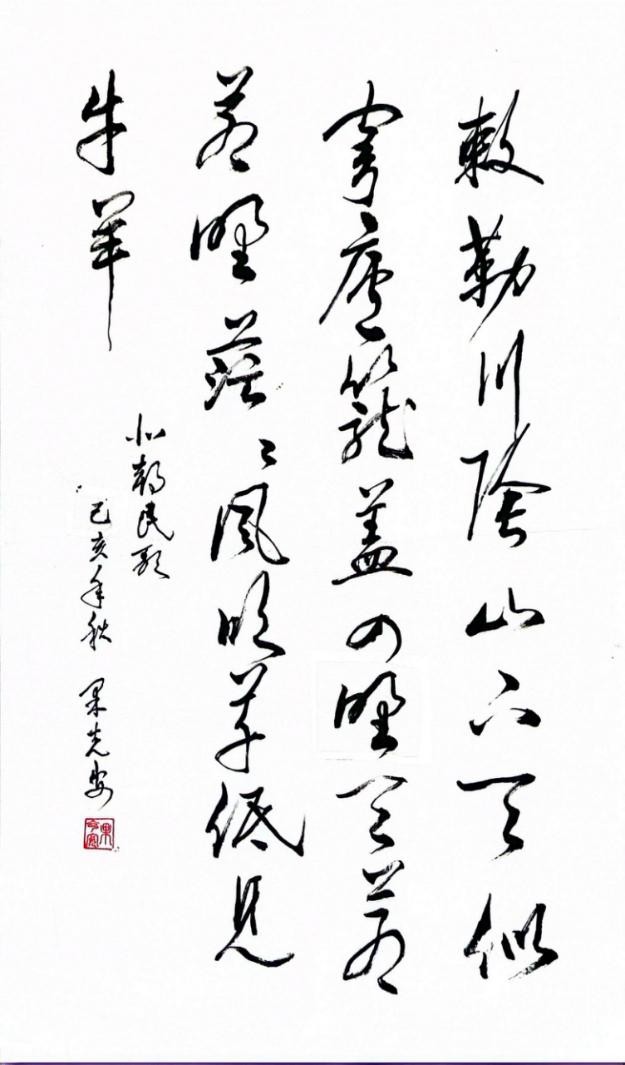 敕勒川陰山下天似
穹廬籠蓋四野天蒼
蒼野茫〻風吹草低見
牛羊
北朝民歌
己亥年秋 果先安